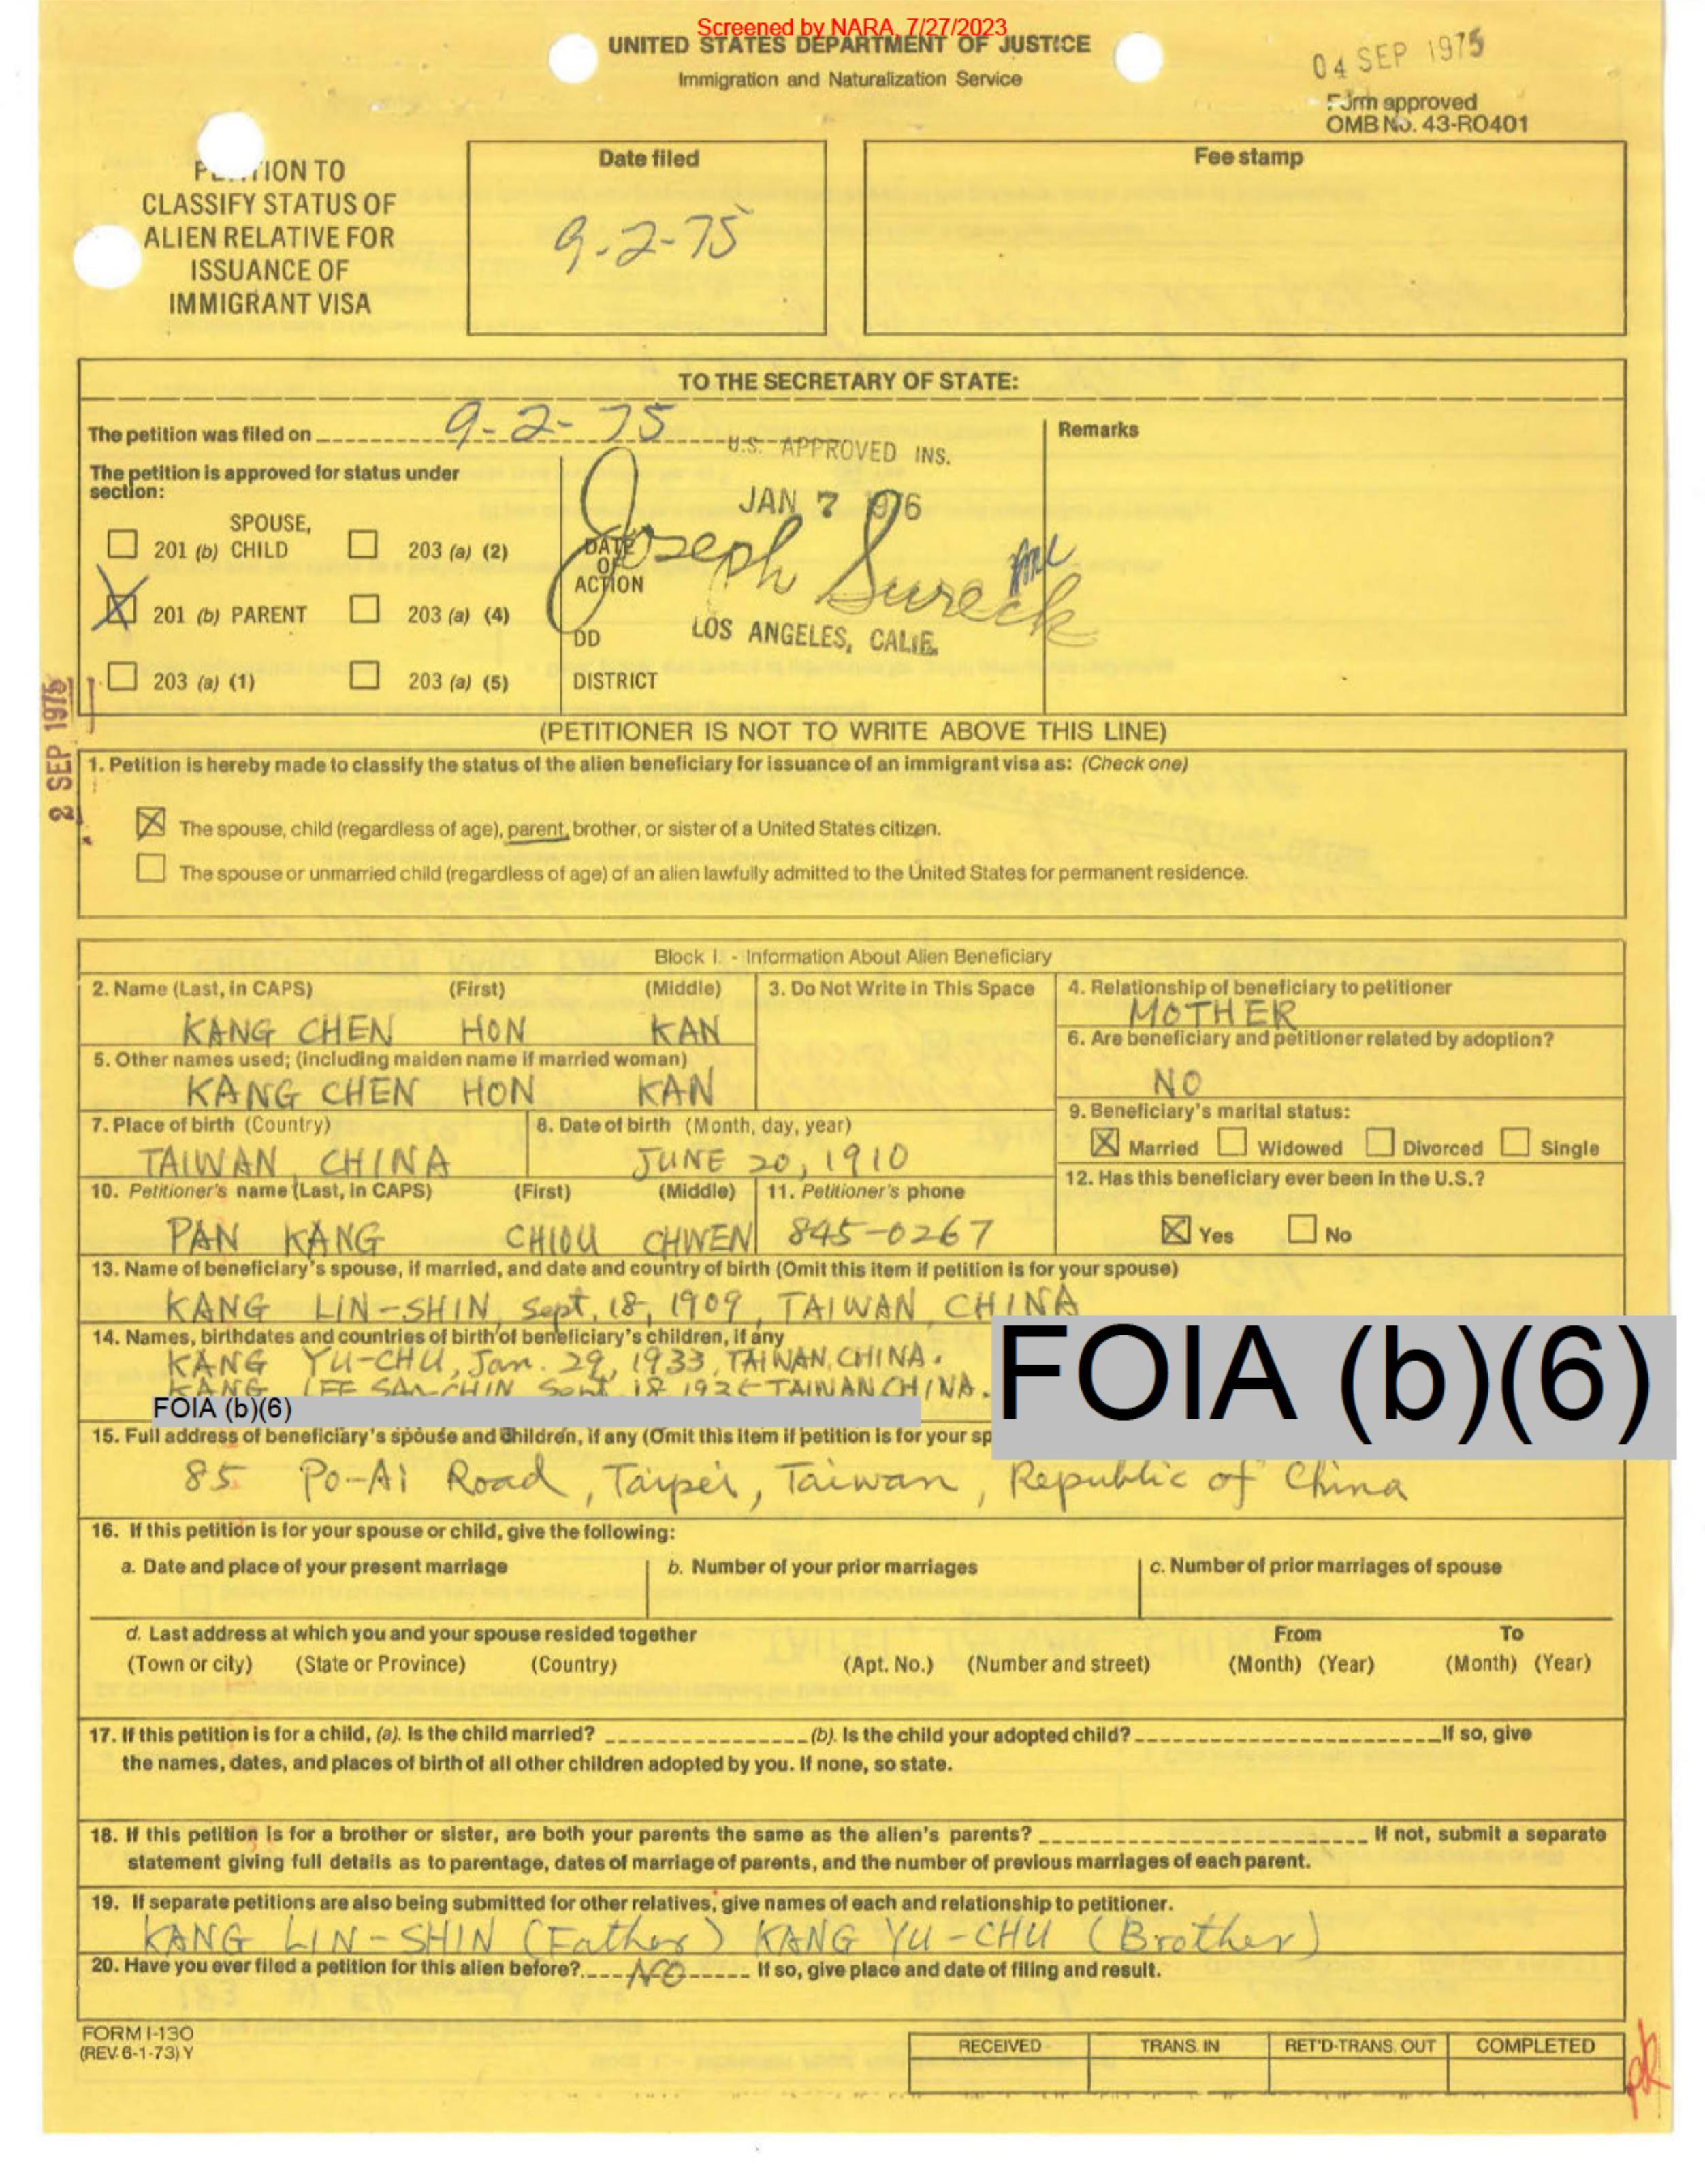 Screened by NARA, 7/27/2023
UNITED STATES DEPARTMENT OF JUSTICE
Immigration and Naturalization Service
04 SEP 1975
Form approved
OMB No. 43-RO401
ION TO
CLASSIFY STATUS OF
ALIEN RELATIVE FOR
ISSUANCE OF
IMMIGRANT VISA
Date filed
9-2-75
Fee stamp
TO THE SECRETARY OF STATE:
The petition was filed on 9-2-75
Remarks
The petition is approved for status under
section:
U.S. APPROVED INS.
JAN 7 1976
SPOUSE,
201 (b) CHILD 203 (a) (2)
201 (b) PARENT 203 (a) (4)
203 (a) (1) 203 (a) (5)
DATE
OF
ACTION
Joseph Sureck
DD
LOS ANGELES, CALIF.
DISTRICT
2 SEP 1975
(PETITIONER IS NOT TO WRITE ABOVE THIS LINE)
1. Petition is hereby made to classify the status of the alien beneficiary for issuance of an immigrant visa as: (Check one)
The spouse, child (regardless of age), parent, brother, or sister of a United States citizen.
The spouse or unmarried child (regardless of age) of an alien lawfully admitted to the United States for permanent residence.
Block I. - Information About Alien Beneficiary
2. Name (Last, in CAPS) (First) (Middle)
KANG CHEN HON KAN
3. Do Not Write in This Space
4. Relationship of beneficiary to petitioner
MOTHER
5. Other names used; (including maiden name if married woman)
KANG CHEN HON KAN
6. Are beneficiary and petitioner related by adoption?
NO
7. Place of birth (Country)
TAIWAN, CHINA
8. Date of birth (Month, day, year)
JUNE 20, 1910
9. Beneficiary's marital status:
Married Widowed Divorced Single
10. Petitioner's name (Last, in CAPS) (First) (Middle)
PAN KANG CHIOU CHWEN
11. Petitioner's phone
845-0267
12. Has this beneficiary ever been in the U.S.?
Yes No
13. Name of beneficiary's spouse, if married, and date and country of birth (Omit this item if petition is for your spouse)
KANG LIN-SHIN, Sept. 18, 1909, TAIWAN, CHINA
14. Names, birthdates and countries of birth of beneficiary's children, if any
KANG YU-CHU, Jan. 29, 1933, TAIWAN, CHINA.
KANG LEE SAN-CHIN Sept. 18 TAIWAN CHINA.
FOIA (b)(6)
FOIA (b)(6)
15. Full address of beneficiary's spouse and children, if any (Omit this item if petition is for your sp
85 Po-Ai Road, Taipei, Taiwan, Republic of China
16. If this petition is for your spouse or child, give the following:
a. Date and place of your present marriage
b. Number of your prior marriages
c. Number of prior marriages of spouse
d. Last address at which you and your spouse resided together From To
(Town or city) (State or Province) (Country) (Apt. No.) (Number and street) (Month) (Year) (Month) (Year)
17. If this petition is for a child, (a). Is the child married? (b). Is the child your adopted child? If so, give
the names, dates, and places of birth of all other children adopted by you. If none, so state.
18. If this petition is for a brother or sister, are both your parents the same as the alien's parents? If not, submit a separate
statement giving full details as to parentage, dates of marriage of parents, and the number of previous marriages of each parent.
19. If separate petitions are also being submitted for other relatives, give names of each and relationship to petitioner.
KANG LIN-SHIN (Father) KANG YU-CHU (Brother)
20. Have you ever filed a petition for this alien before? NO If so, give place and date of filing and result.
FORM I-130
(REV. 6-1-73) Y
RECEIVED TRANS. IN RET'D-TRANS. OUT COMPLETED